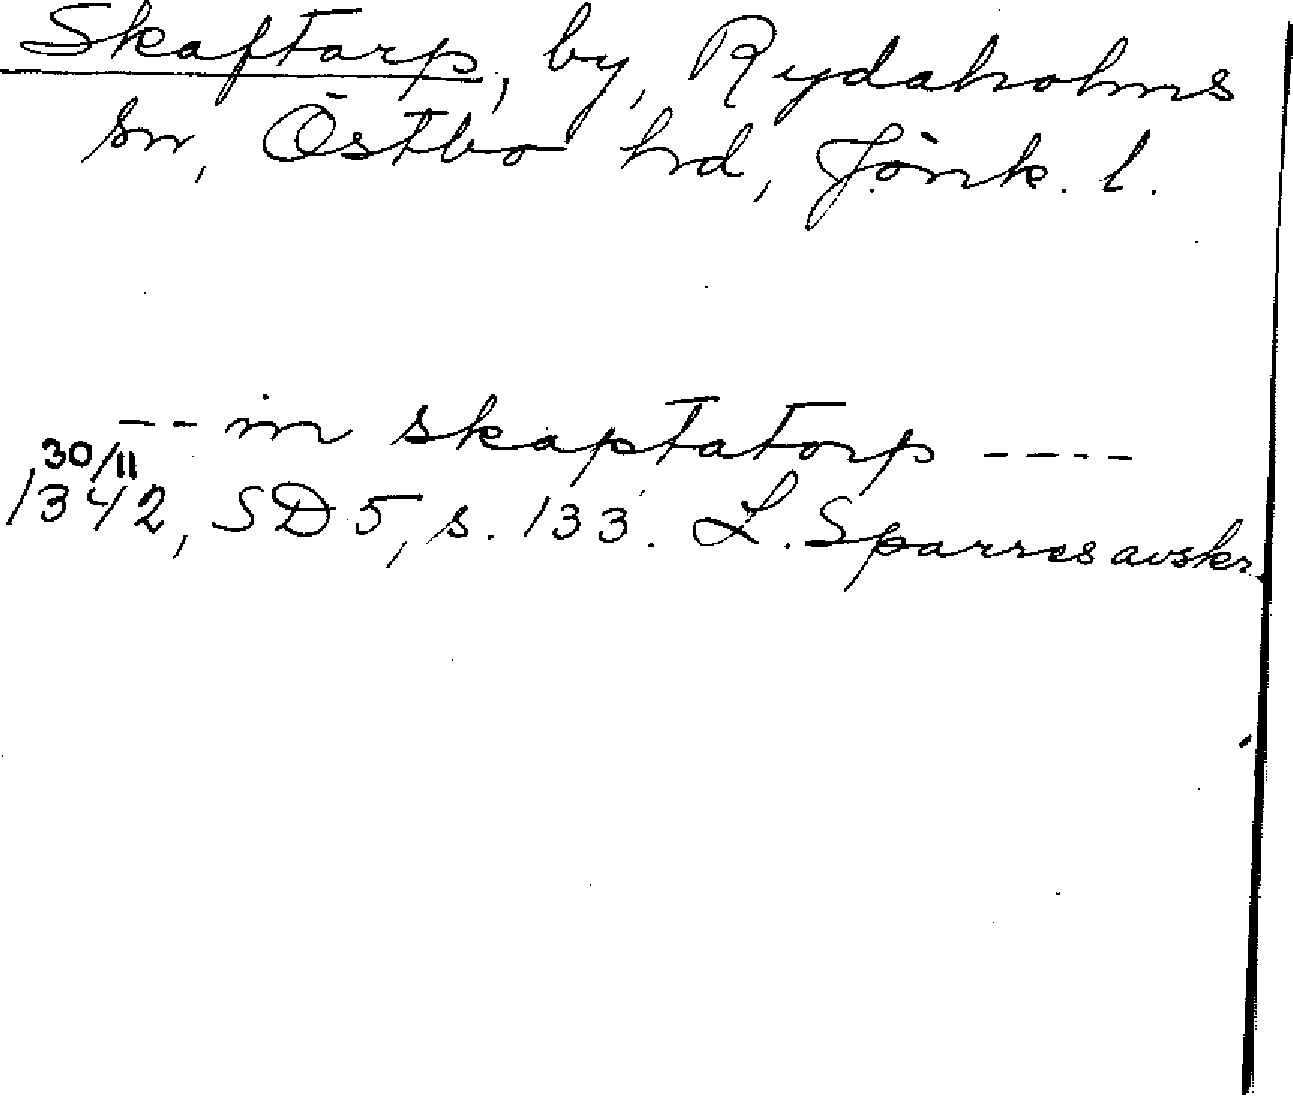 Skaftarp, by, Rydaholms
sn, Östbo hd, Jönk. l.
-- in skaptatorp ----
30/11
1342, SD 5, s. 133. L. Sparres avskr.